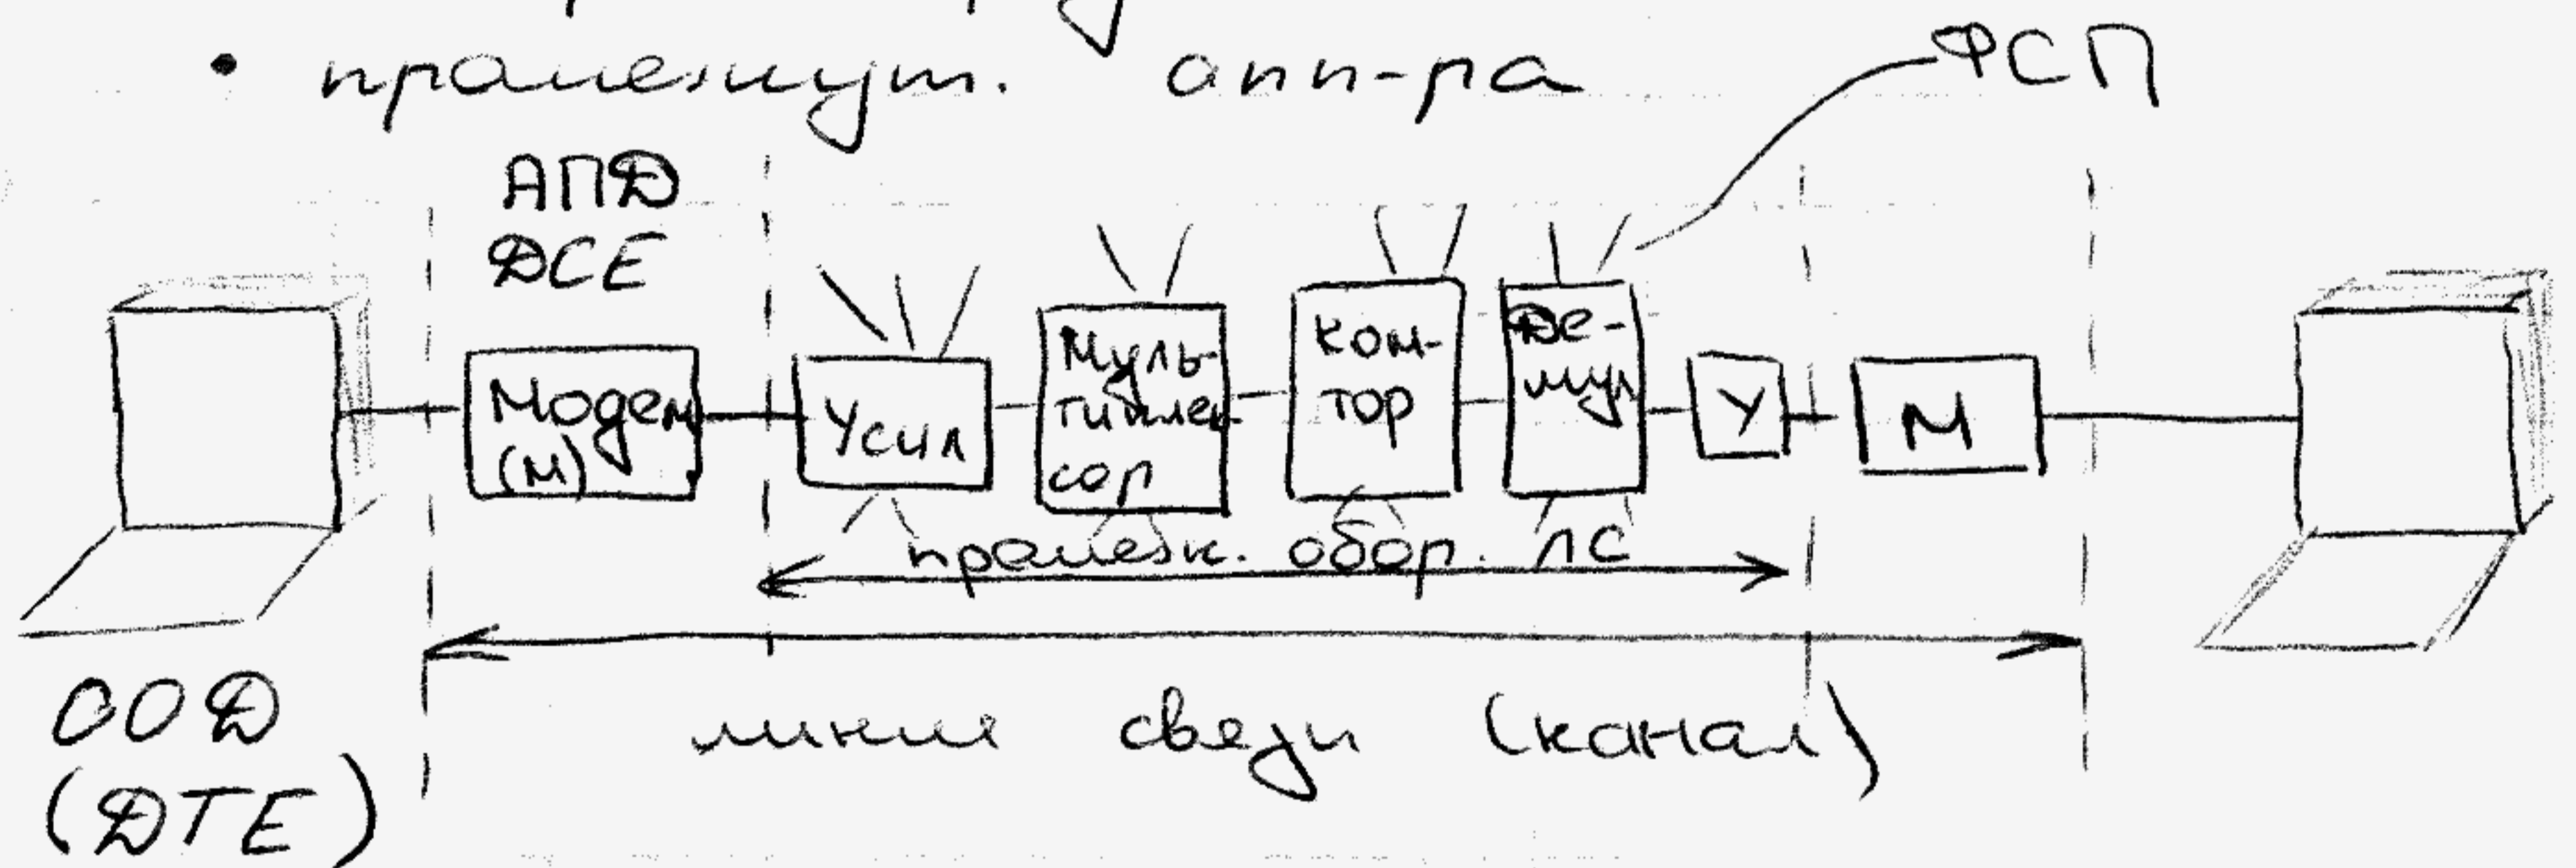 • промежут. апп-ра
ФСП
АПД
DCE
Модем
(М)
Усил
Муль-
типлек-
сор
Ком-
тор
Де-
мул
У
М
промеж. обор. ЛС
ООД
(DTE)
линия связи (канал)